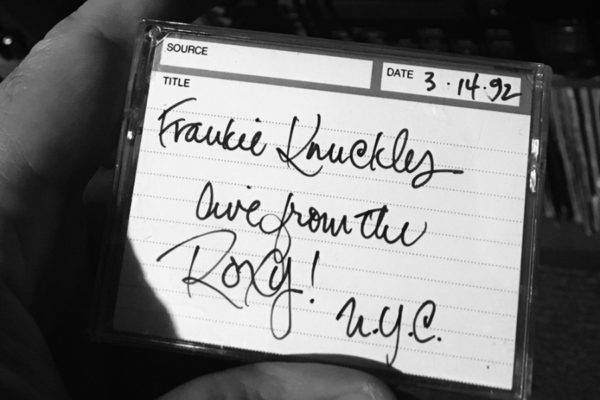 SOURCE
DATE 3·14·92
TITLE
Frankie Knuckles
Live from the
Roxy!
N.Y.C.